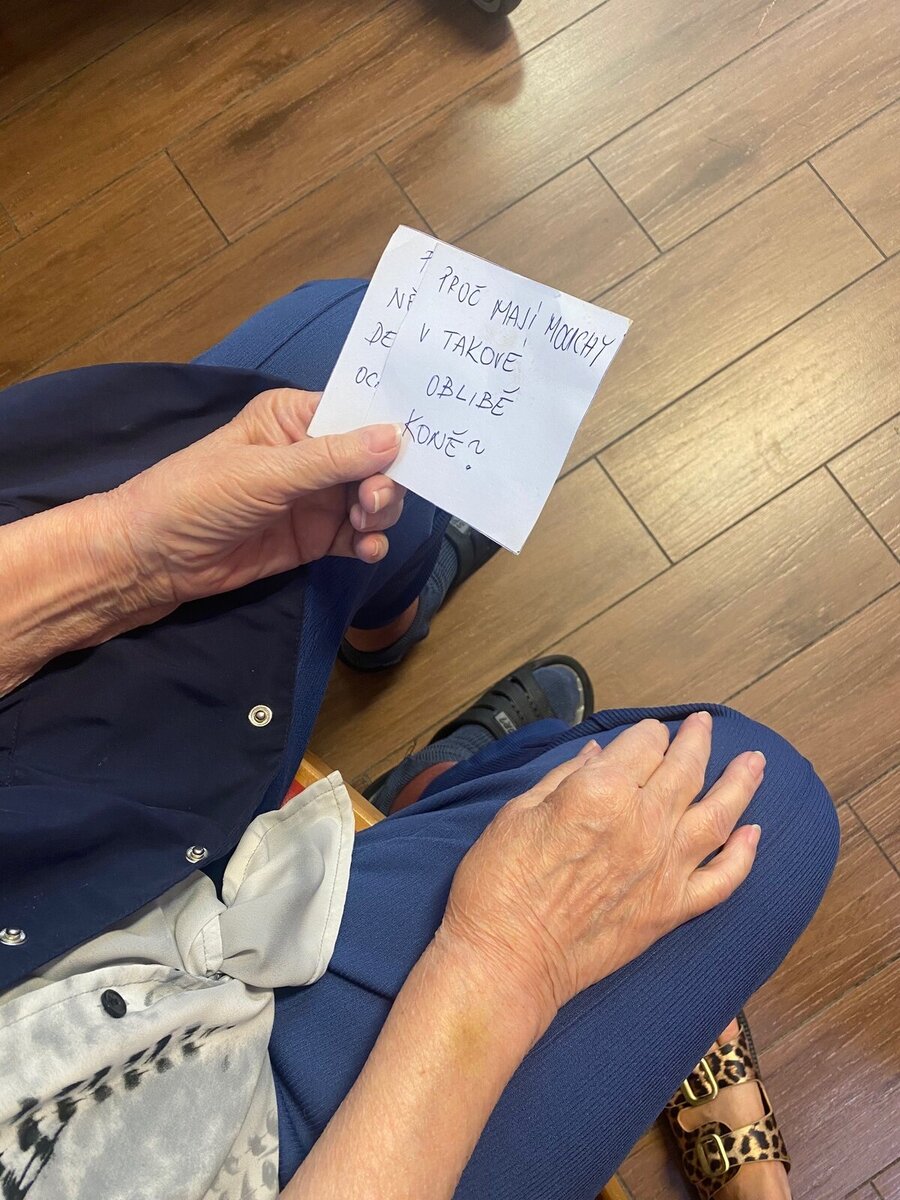 PROČ MAJÍ MOUCHY
V TAKOVÉ
OBLIBĚ
KONĚ?
NĚ
DE